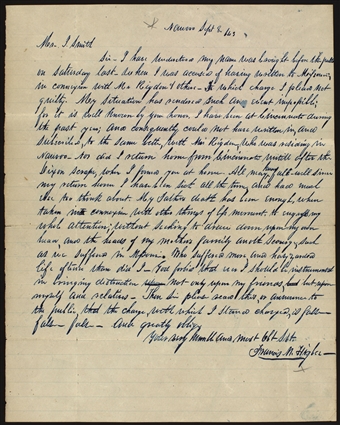 Nauvoo Sept 8. 43
Mr. J Smith
Sir - I have understood my name was brought before the public
on Saturday last when I was accused of having written to Missouri
in connexion with Mr Rigdon & others - To which charge I plead not
guilty. My situation has rendered such an event impossible;
for it is well known by your honor I have been at Cincinnati during
the past year, And consequently could not have written in, and
subscribed, to the same letter, with Mr. Rigdon, who was residing in
Nauvoo Nor did I return home from Cincinnati untill after the
Dixon scrape, when I found you at home. All may still since
my return soon I have been sick all the time, and had much
else to think about My Fathers death has been enough, when
taken in connexion with other things of life moment to engross my
whole attention; without seeking to draw down upon my own
head, and the heads of my mothers family another Scourge, such
as we suffered in Missouri. Who suffered more and hazarded
life oftener than did I - God forbid that ever I should be instrumental
in bringing destruction not only upon my friends, but upon
myself and relatives - Then Sir please read this or announce to
the public, that the charge with which I stand charged, is false
false - false - And greatly oblige
Yours very Humble and most Obt Sert.
Francis M. Higbee